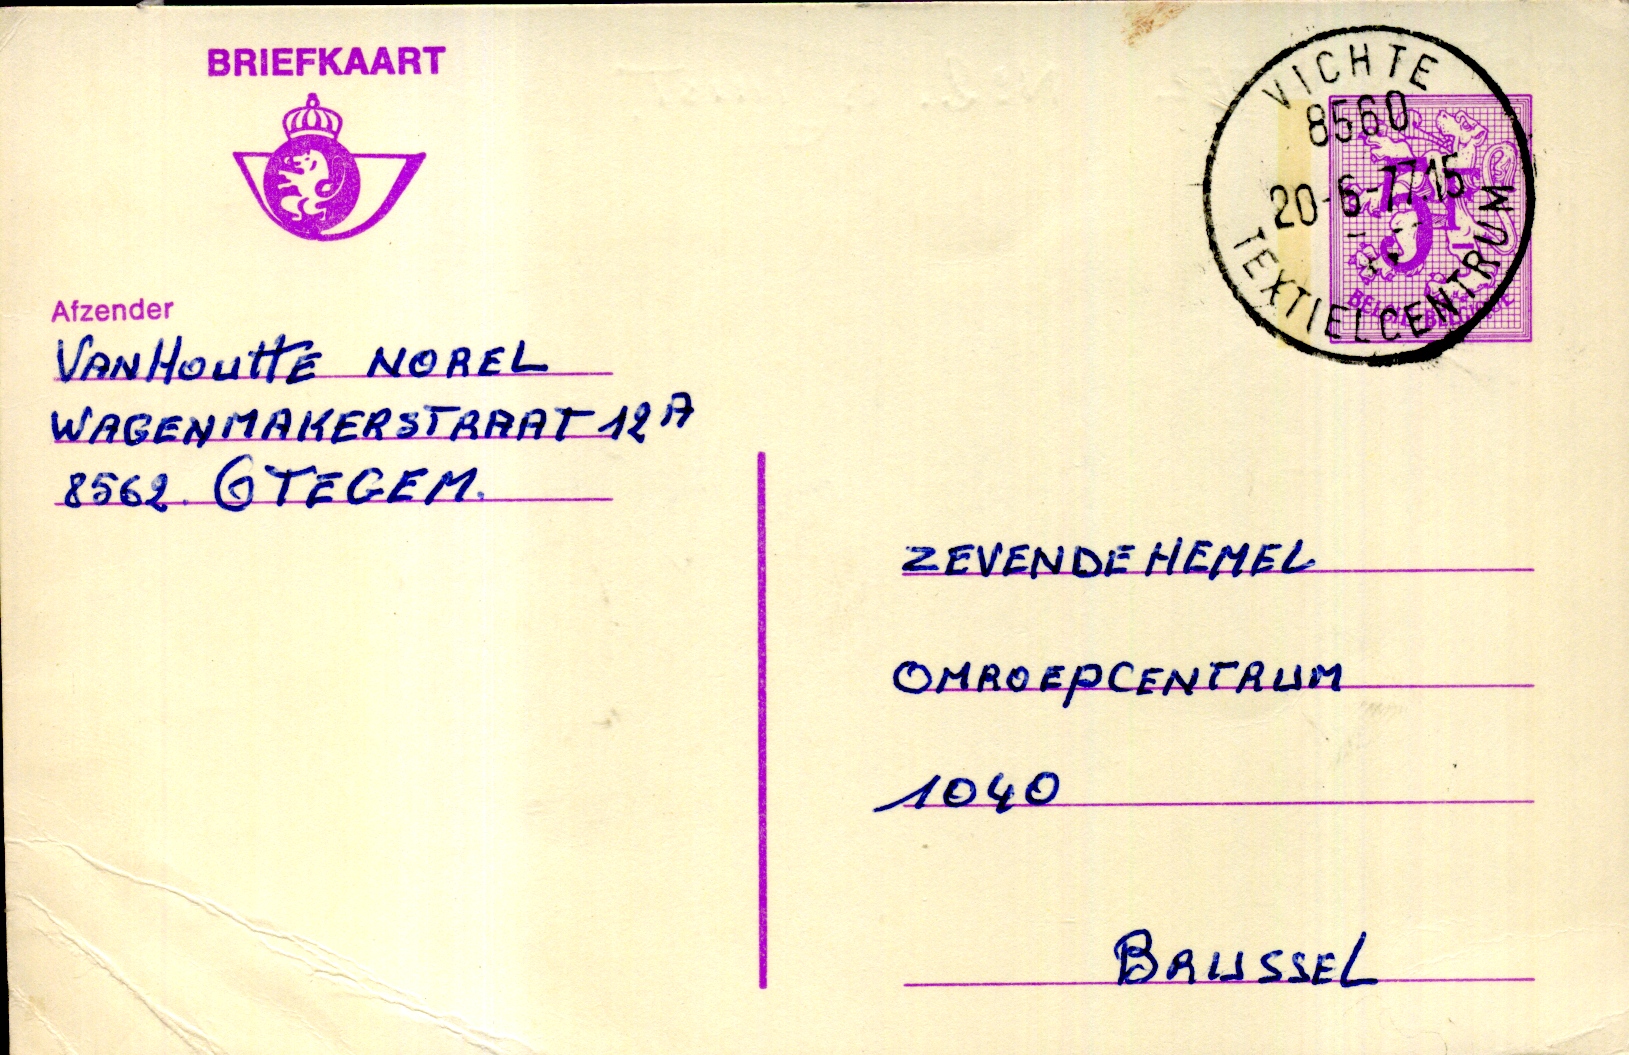 BRIEFKAART
VICHTE
8560
20-6-77.15
TEXTIELCENTRUM
5F
BELGIE-BELGIQUE
Afzender
VANHOUTTE NOREL
WAGENMAKERSTRAAT 12A
8562. OTEGEM.
ZEVENDE HEMEL
OMROEPCENTRUM
1040
BRUSSEL